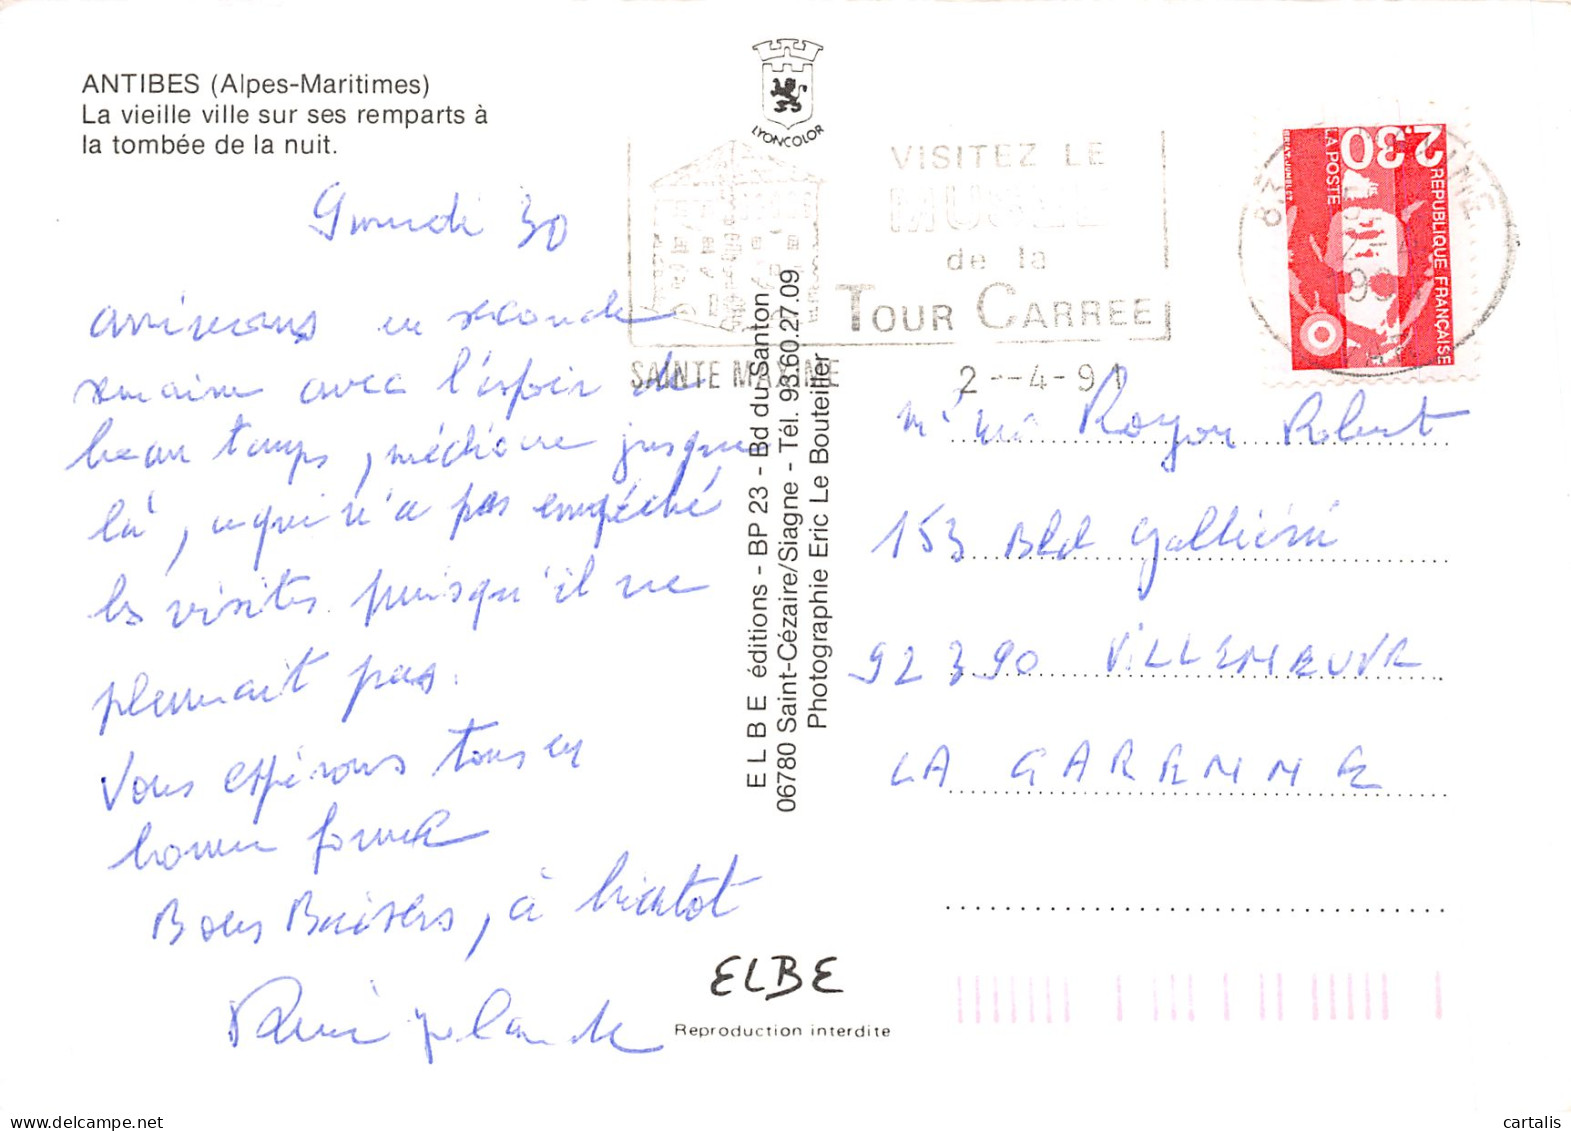 ANTIBES (Alpes-Maritimes)
La vieille ville sur ses remparts à
la tombée de la nuit.
LYONCOLOR
VISITEZ LE
MUSEE
de la
TOUR CARREE
SAINTE MAXIME
2--4-91
2.30
LA POSTE
REPUBLIQUE FRANÇAISE
BRIAT.JUMELET
30
arriverons en seconde
semaine avec l'espoir de
beau temps, médiocre jusque
là, ce qui n'a pas empêché
les visites puisqu'il ne
pleuvait pas.
Vous espérons tous en
bonne forme
Bons Baisers, à bientôt
Yolande
ELBE éditions - BP 23 - Bd du Santon
06780 Saint-Cézaire/Siagne - Tél. 93.60.27.09
Photographie Eric Le Bouteiller
Mr Me Royer Robert
153 Bld Galliéni
92390 VILLENEUVE
LA GARENNE
ELBE
Reproduction interdite
delcampe.net
cartalis